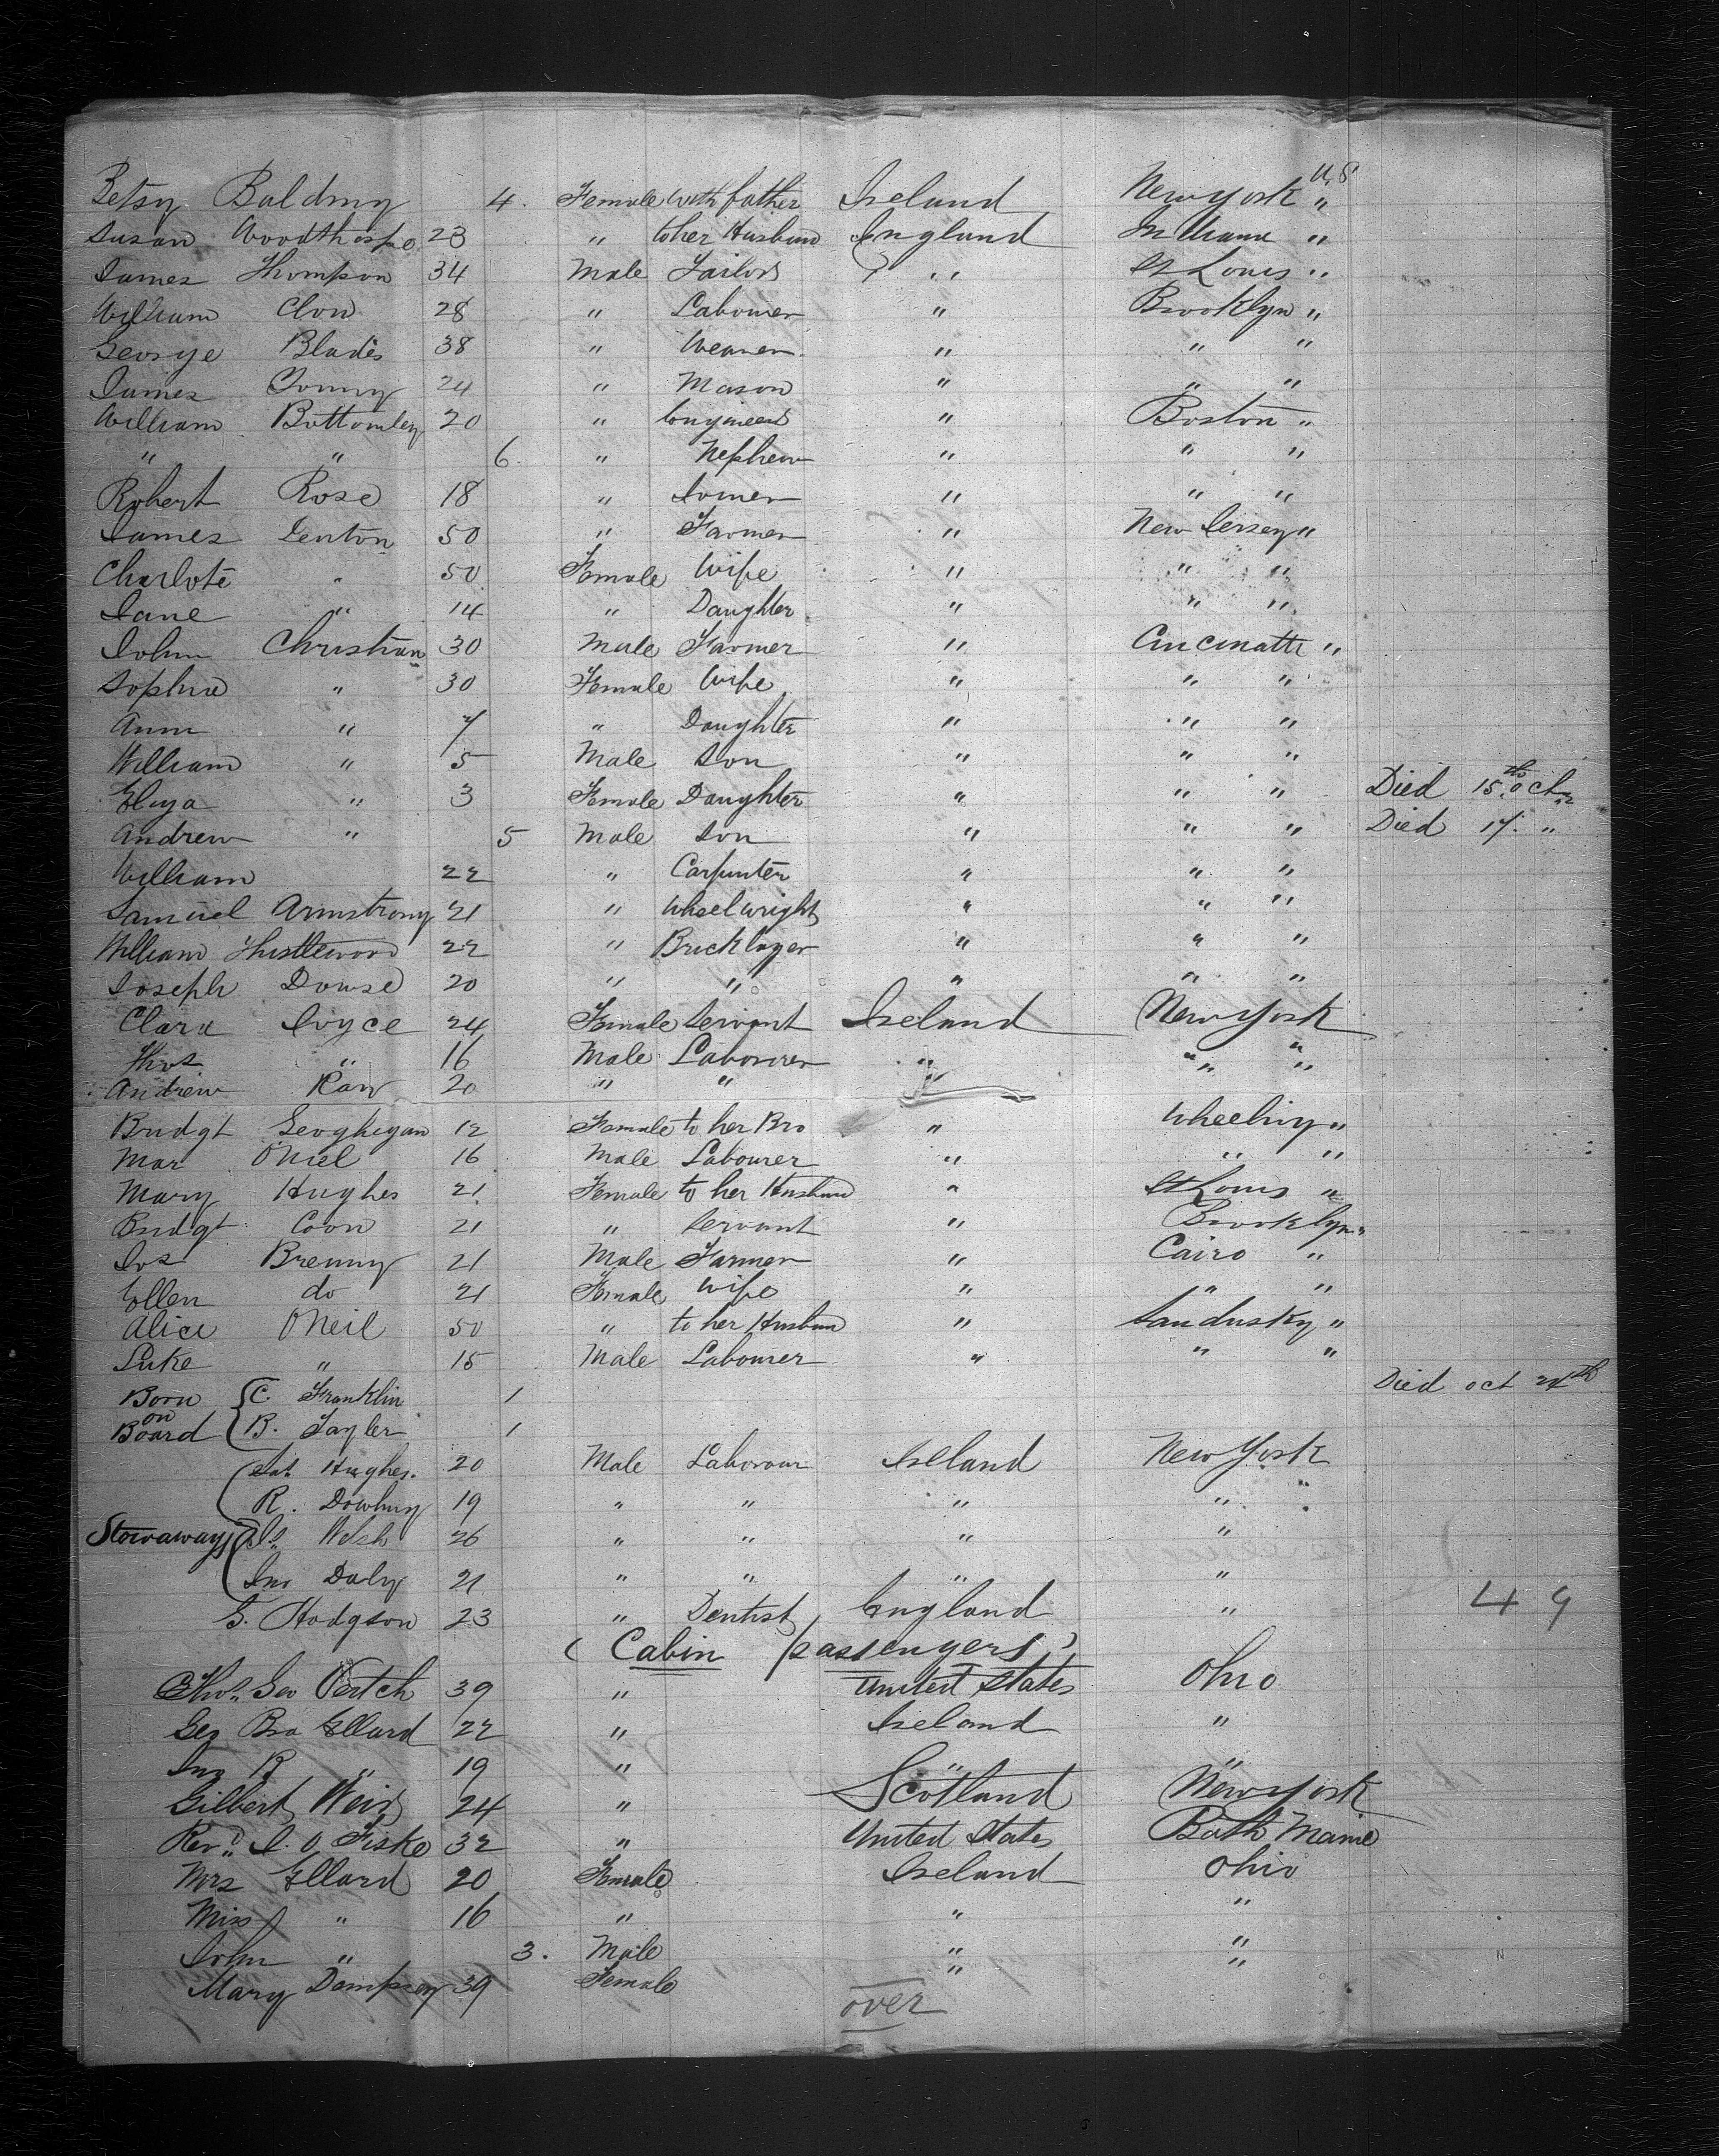 Betsy Baldiny 4. Female with father Ireland New York U,S "
Susan Woodthorpe 23 " to her Husban England Indiana "
James Thompson 34 Male Tailor " St Louis "
William Clow 28 " Labourer " Brooklyn "
George Blades 38 " Weaver " " "
James 24 " Mason " " "
William Bottomley 20 " Engineer " Boston "
" " 6. " Nephew " " "
Robert Rose 18 " Joiner " " "
James Lenton 50 " Farmer " New Jersey "
Charlote " 50 Female Wife " " "
Jane " 14 " Daughter " " "
John Christian 30 Male Farmer " Cincinatti "
Sophia " 30 Female Wife " " "
Ann " 7 " Daughter " " "
William " 5 Male Son " " "
Eliza " 3 Female Daughter " " " Died 15th Oct
Andrew " 5 Male Son " " " Died 17. "
William 22 " Carpenter " " "
Samuel Armstrong 21 " Wheelwright " " "
William Thistlewood 22 " Bricklayer " " "
Joseph Dowse 20 " " " " "
Clara Joyce 24 Female Servant Ireland New York
Thos " 16 Male Labourer " " "
Andrew Kav 20 " " " " "
Bridgt Geoghegan 12 Female to her Bro " Wheeling "
Mar ONiel 16 Male Labourer " " "
Mary Hughes 21 Female to her Husban " St Louis "
Bridgt Coon 21 " Servant " Brooklyn "
Jos Brenny 21 Male Farmer " Cairo "
Ellen do 21 Female Wife " " "
Alice ONeil 50 " to her Husban " Sandusky "
Luke " 15 Male Labourer " " "
Born on Board { C. Franklin 1 Died Oct 24th
B. Tayler 1
Stowaways { Pat Hughes. 20 Male Labourour Ireland New York
R. 19 " " " " "
Welsh 26 " " " "
Jno Daly 21 " " " "
G. Hodgson 23 " Dentist England " 49
( Cabin passengers )
Thos Geo Vertch 39 " United States Ohio
Geo Bra Ellard 22 " Ireland "
Jno B " 19 " " "
Gilbert Weir 24 " Scotland New York
Revd J. O Fiske 32 " United States Bath Maine
Mrs Ellard 20 Female Ireland Ohio
Miss " 16 " " "
John " 3. Male " "
Mary Dempsey 39 Female " "
over